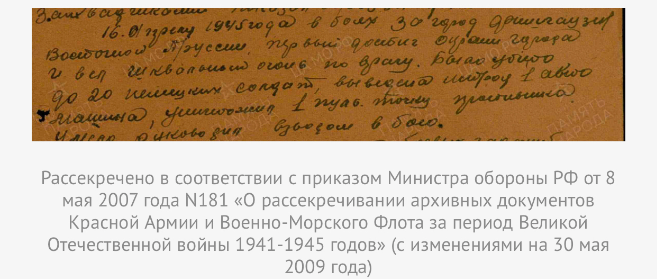 16. 01 1945 года в боях за город
Восточной Пруссии, первый окраин города
и вел огонь по врагу. Было убито
до 20 немецких солдат, выведена из строя 1 авто
машина, уничтожил 1 пуль. точку противника
Умело руководил взводом в бою.
Рассекречено в соответствии с приказом Министра обороны РФ от 8
мая 2007 года N181 «О рассекречивании архивных документов
Красной Армии и Военно-Морского Флота за период Великой
Отечественной войны 1941-1945 годов» (с изменениями на 30 мая
2009 года)